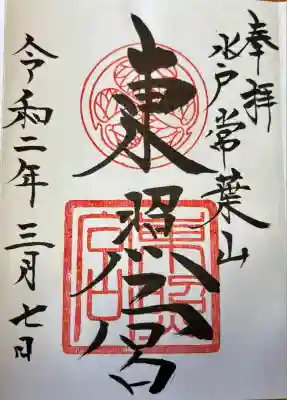 奉拝
水戸常葉山
東照宮
令和二年三月七日